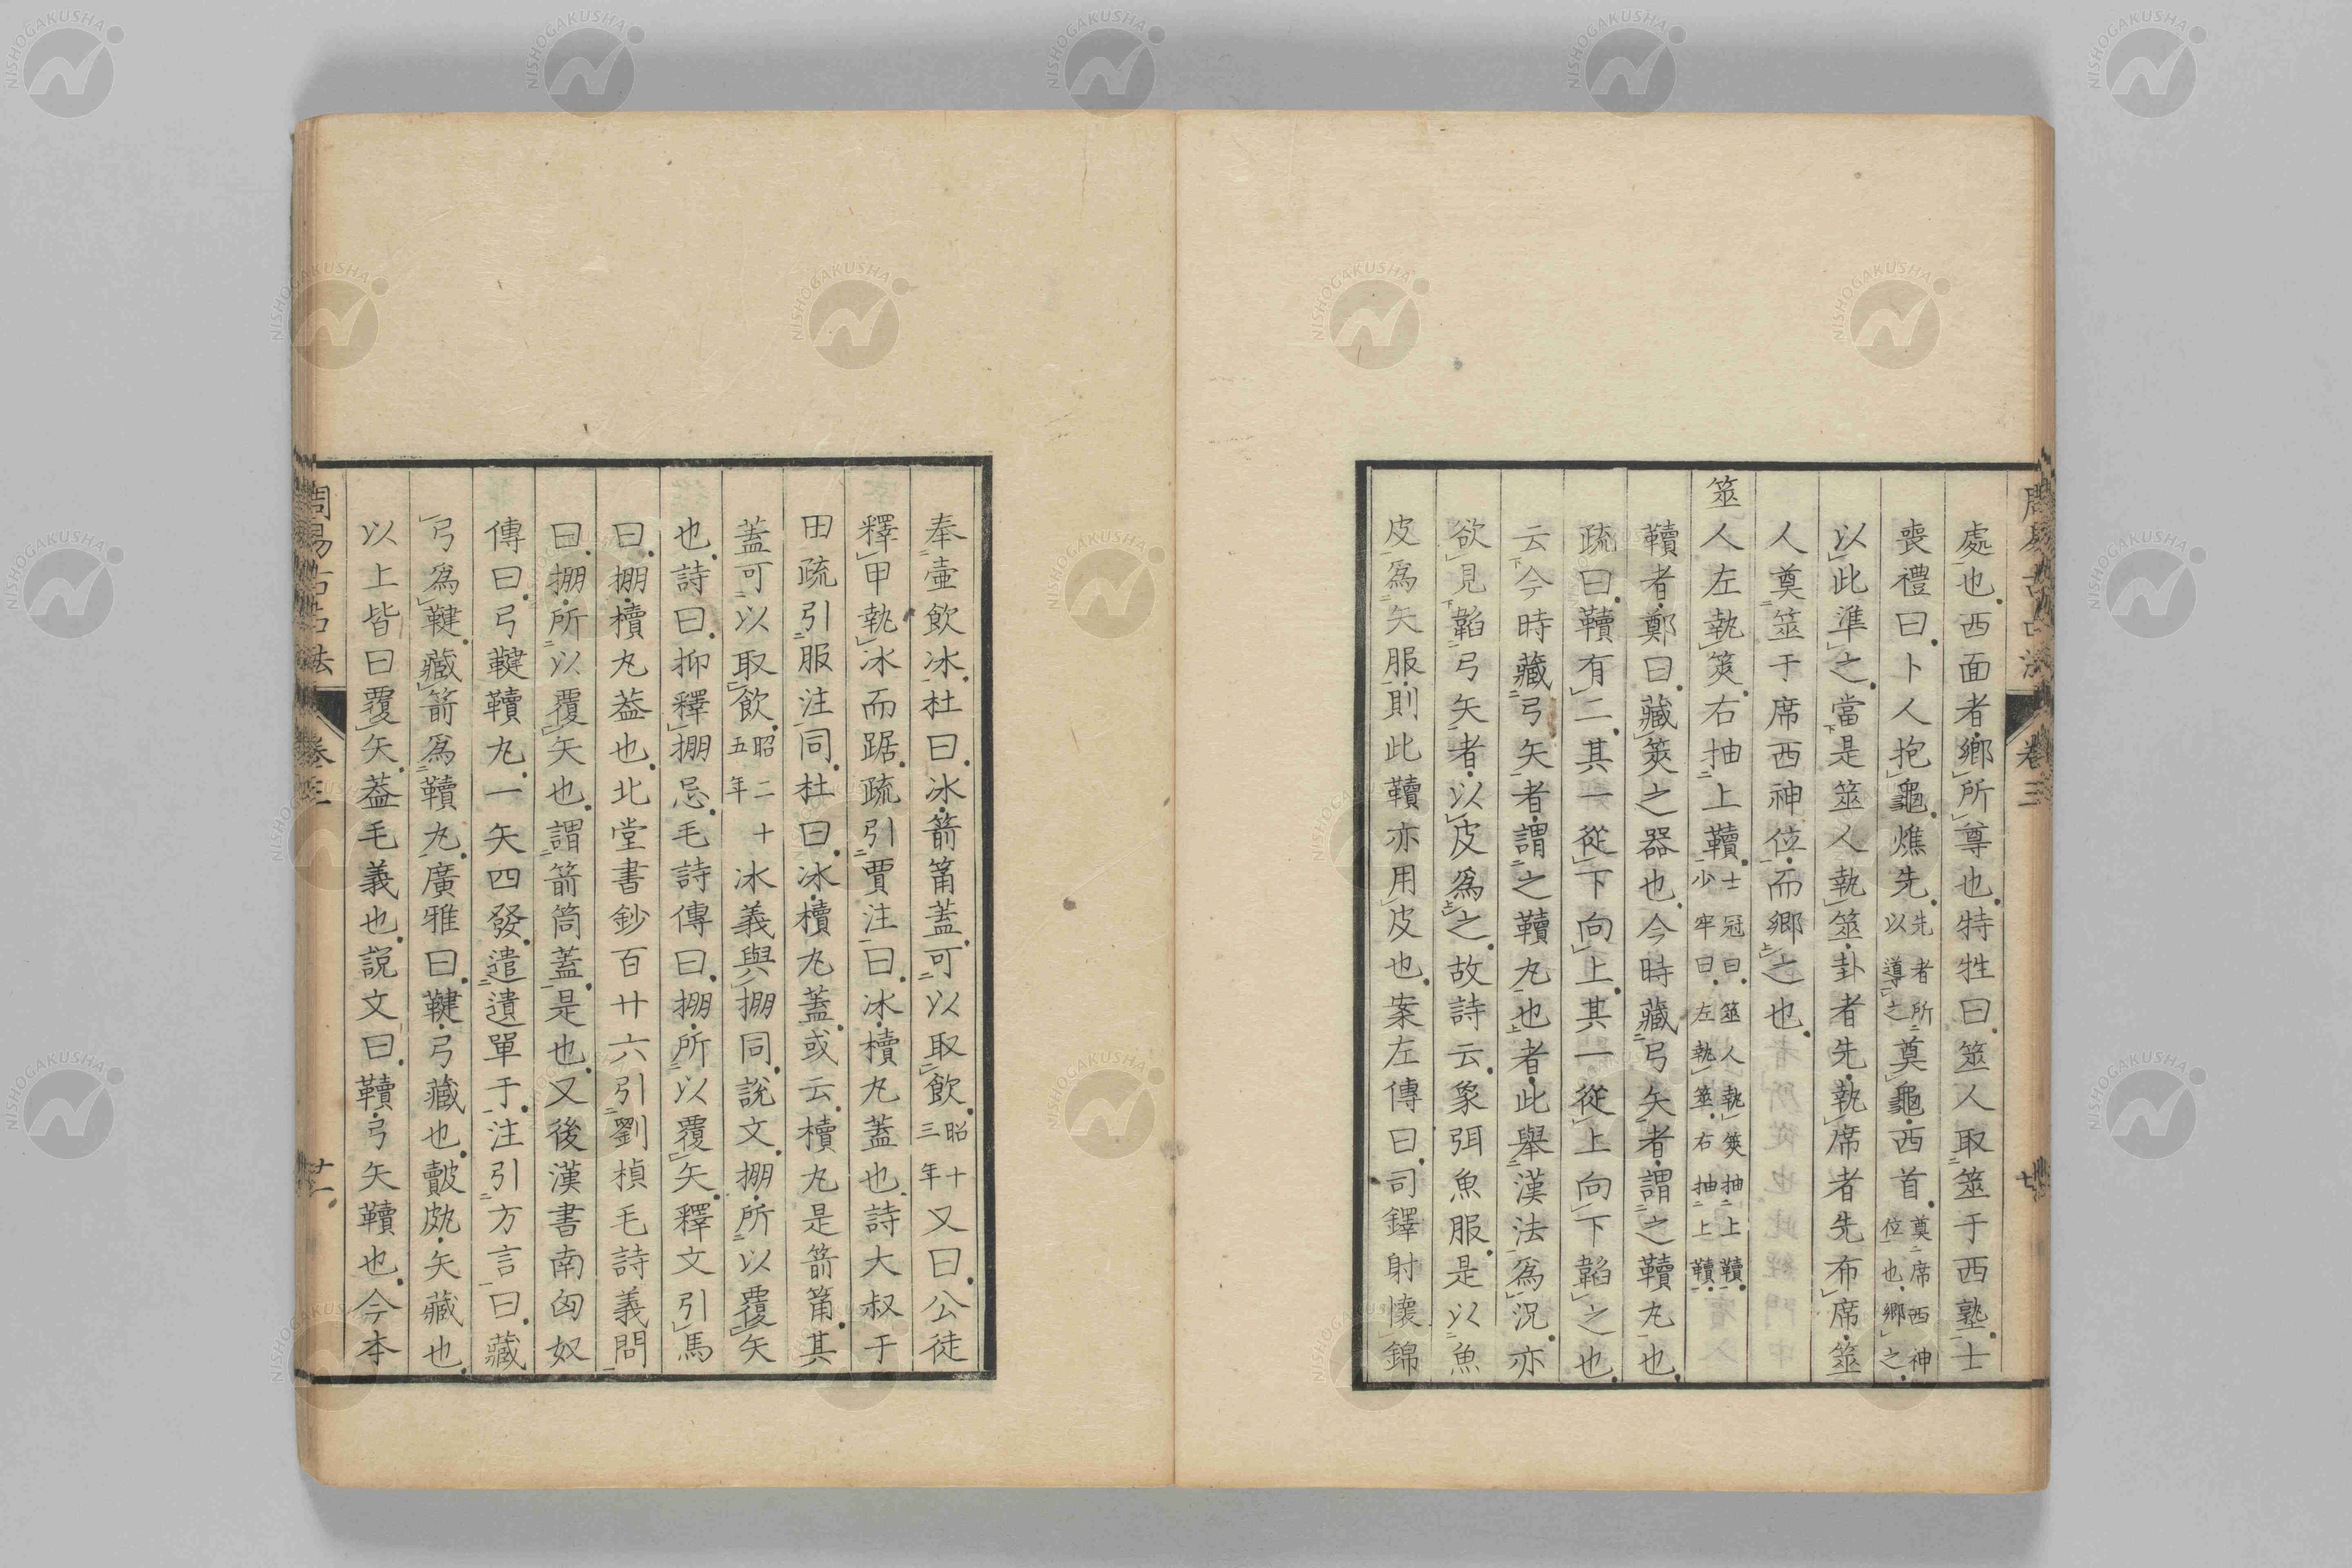 處也西面者鄉所尊也特牲曰筮人取筮于西塾士
喪禮曰卜人抱龜燋先先者所以導之奠龜西首奠席西神位也鄉之
以此準之當是筮人執筮卦者先執席者先布席筮
人奠筮于席西神位而鄉之也
筮人左執筴右抽上韇士冠曰筮人執筴抽上韇少牢曰左執筮右抽上韇
韇者鄭曰藏筴之器也今時藏弓矢者謂之韇丸也
疏曰韇有二其一從下向上其一從上向下韜之也
云今時藏弓矢者謂之韇丸也者此舉漢法為況亦
欲見韜弓矢者以皮為之故詩云象弭魚服是以魚
皮為矢服則此韇亦用皮也案左傳曰司鐸射懷錦
奉壺飲冰杜曰冰箭筩蓋可以取飲昭十三年又曰公徒
釋甲執冰而踞疏引賈注曰冰櫝丸蓋也詩大叔于
田疏引服注同杜曰冰櫝丸蓋或云櫝丸是箭筩其
蓋可以取飲昭二十五年冰義與掤同說文掤所以覆矢
也詩曰抑釋掤忌毛詩傳曰掤所以覆矢釋文引馬
曰掤櫝丸葢也北堂書鈔百廿六引劉楨毛詩義問
曰掤所以覆矢也謂箭筒蓋是也又後漢書南匈奴
傳曰弓鞬韇丸一矢四發遣遺單于注引方言曰藏
弓為鞬藏箭為韇丸廣雅曰鞬弓藏也皾𤿎矢藏也
以上皆曰覆矢葢毛義也說文曰韇弓矢韇也今本
周易古占法 卷三
NISHOGAKUSHA